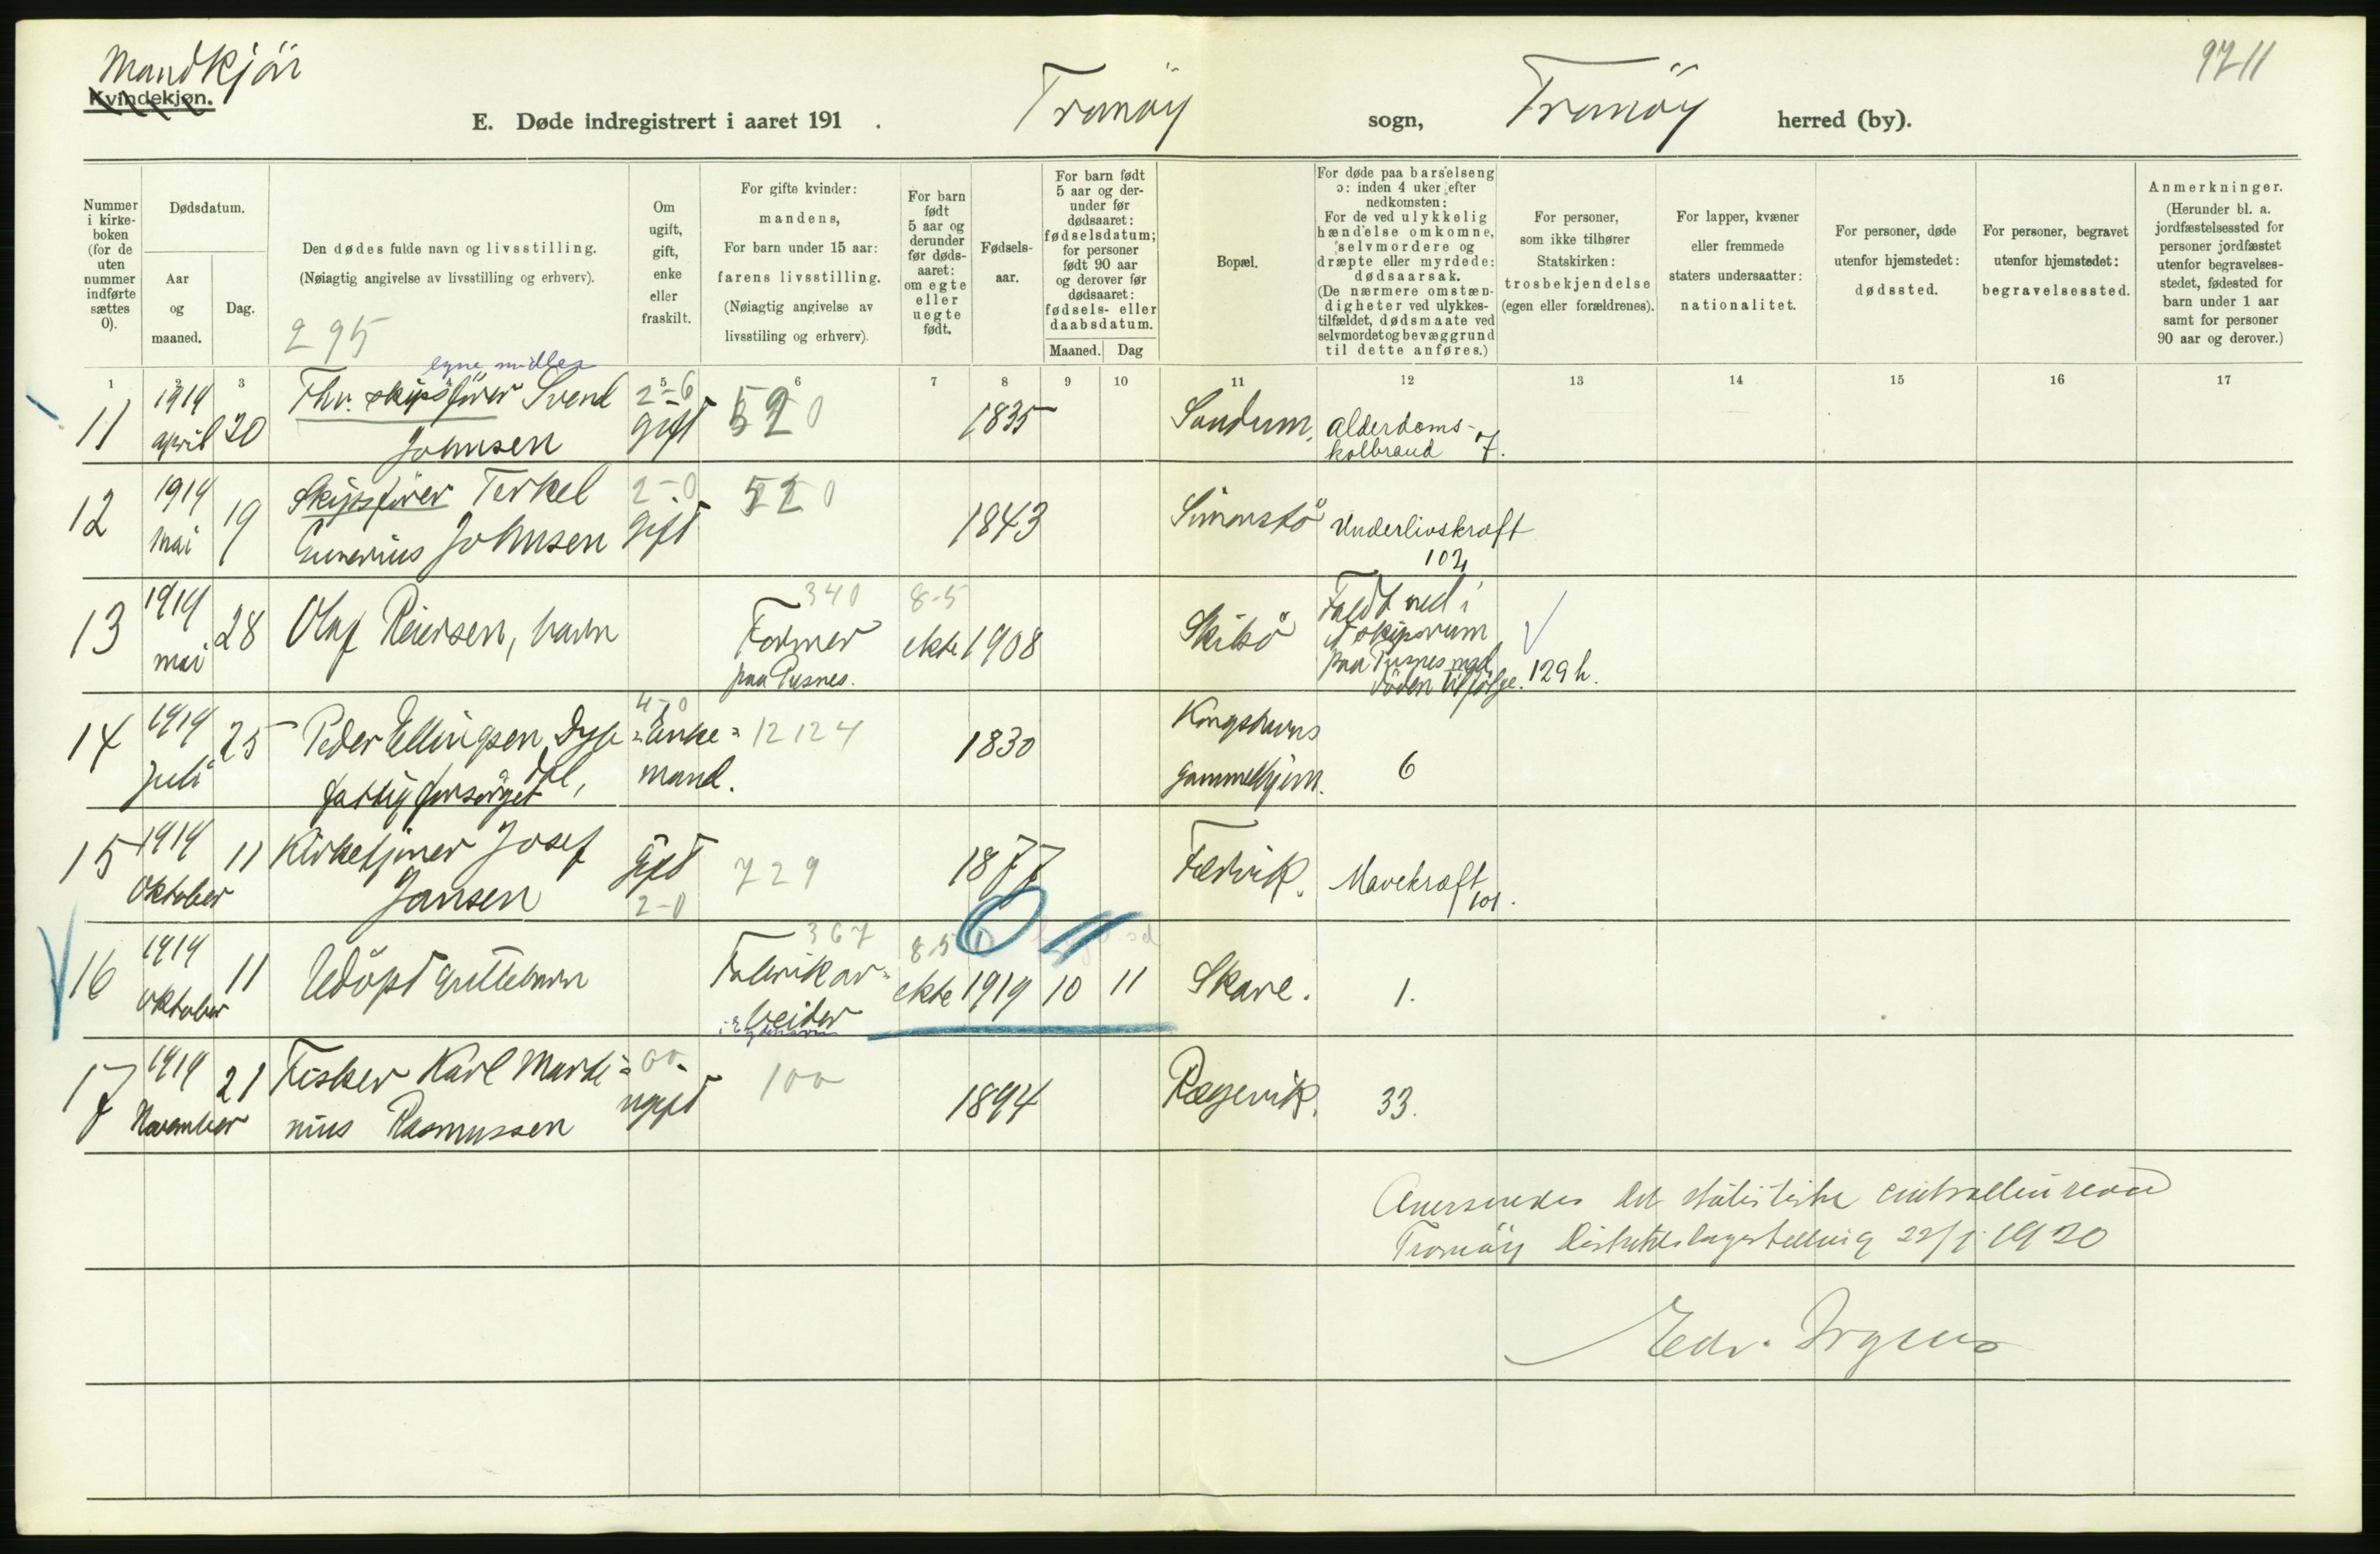 Mandkjön
Kvindekjøn.
E. Døde indregistrert i aaret 191 .
Tromöy sogn, Tromöy herred (by).
9711
Nummer i kirke-boken (for de uten nummer indførte sættes 0).
Dødsdatum.
Aar og maaned.
Dag.
Den dødes fulde navn og livsstilling.
(Nøiagtig angivelse av livsstilling og erhverv).
295
Om ugift, gift, enke eller fraskilt.
For gifte kvinder:
mandens,
For barn under 15 aar:
farens livsstilling.
(Nøiagtig angivelse av
livsstiling og erhverv).
For barn født 5 aar og derunder før døds-aaret: om egte eller uegte født.
Fødsels-aar.
For barn født 5 aar og der-under før dødsaaret: fødselsdatum; for personer født 90 aar og derover før dødsaaret: fødsels- eller daabsdatum.
Maaned. Dag
Bopæl.
For døde paa barselseng
ɔ: inden 4 uker efter
nedkomsten:
For de ved ulykkelig
hændelse omkomne,
selvmordere og
dræpte eller myrdede:
dødsaarsak.
(De nærmere omstæn-
digheter ved ulykkes-
tilfældet, dødsmaate ved
selvmord et og bevæggrund
til dette anføres.)
For personer,
som ikke tilhører
Statskirken:
trosbekjendelse
(egen eller forældrenes).
For lapper, kvæner
eller fremmede
staters undersaatter:
nationalitet.
For personer, døde
utenfor hjemstedet:
dødssted.
For personer, begravet
utenfor hjemstedet:
begravelsessted.
Anmerkninger.
(Herunder bl. a.
jordfæstelsessted for
personer jordfæstet
utenfor begravelses-
stedet, fødested for
barn under 1 aar
samt for personer
90 aar og derover.)
1 2 3 4 5 6 7 8 9 10 11 12 13 14 15 16 17
egne midler
11 1919 april 20 Fhv. skipsförer Svend Johnsen 2-6 gift 520 1835 Sandum. Alderdoms-kolbrand 7.
12 1919 mai 19 Skipsförer Terkel Gunerius Johnsen 2-0 gift 520 1843 Simonstö Underlivskræft 102
13 1919 mai 28 Olaf Reiersen, barn 340 Former paa Pusnes. 8-5 ekte 1908 Skilsö Faldt ned i et skipsrum paa Pusnes med döden til följe. 129 h.
14 1919 Juli 25 Peder Ellingsen Dybdal, fattigforsörget 4-0 Enke=mand. 12124 1830 Kongshavns Gammelhjem. 6
15 1919 Oktober 11 Kirketjener Josef Jansen gift 2-0 729 1877 Færvik. Mavekræft 101.
16 1919 Oktober 11 Udöpt guttebarn 367 Fabrikar=beider i Eydehavn 8.5 ekte 1919 10 11 Skare. 1.
17 1919 November 21 Fisker Karl Marti=nius Rasmussen 00 ugift 100 1894 Rægevik. 33.
Oversendes det statistiske centralbureau
Tromöy Distriktslægestilling 22/1 1920
Edv.